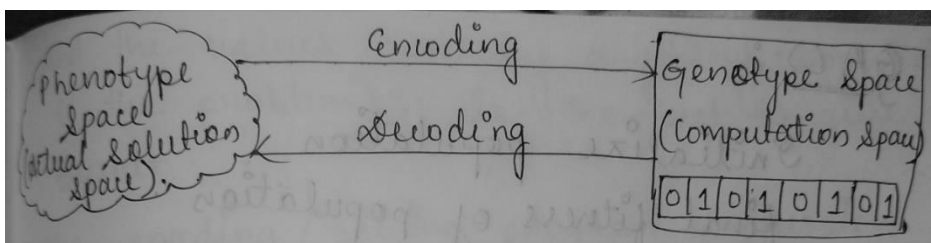 Encoding
Phenotype
Space
(Actual Solution
Space)
Decoding
Genotype Space
(Computation Space)
0 1 0 1 0 1 0 1